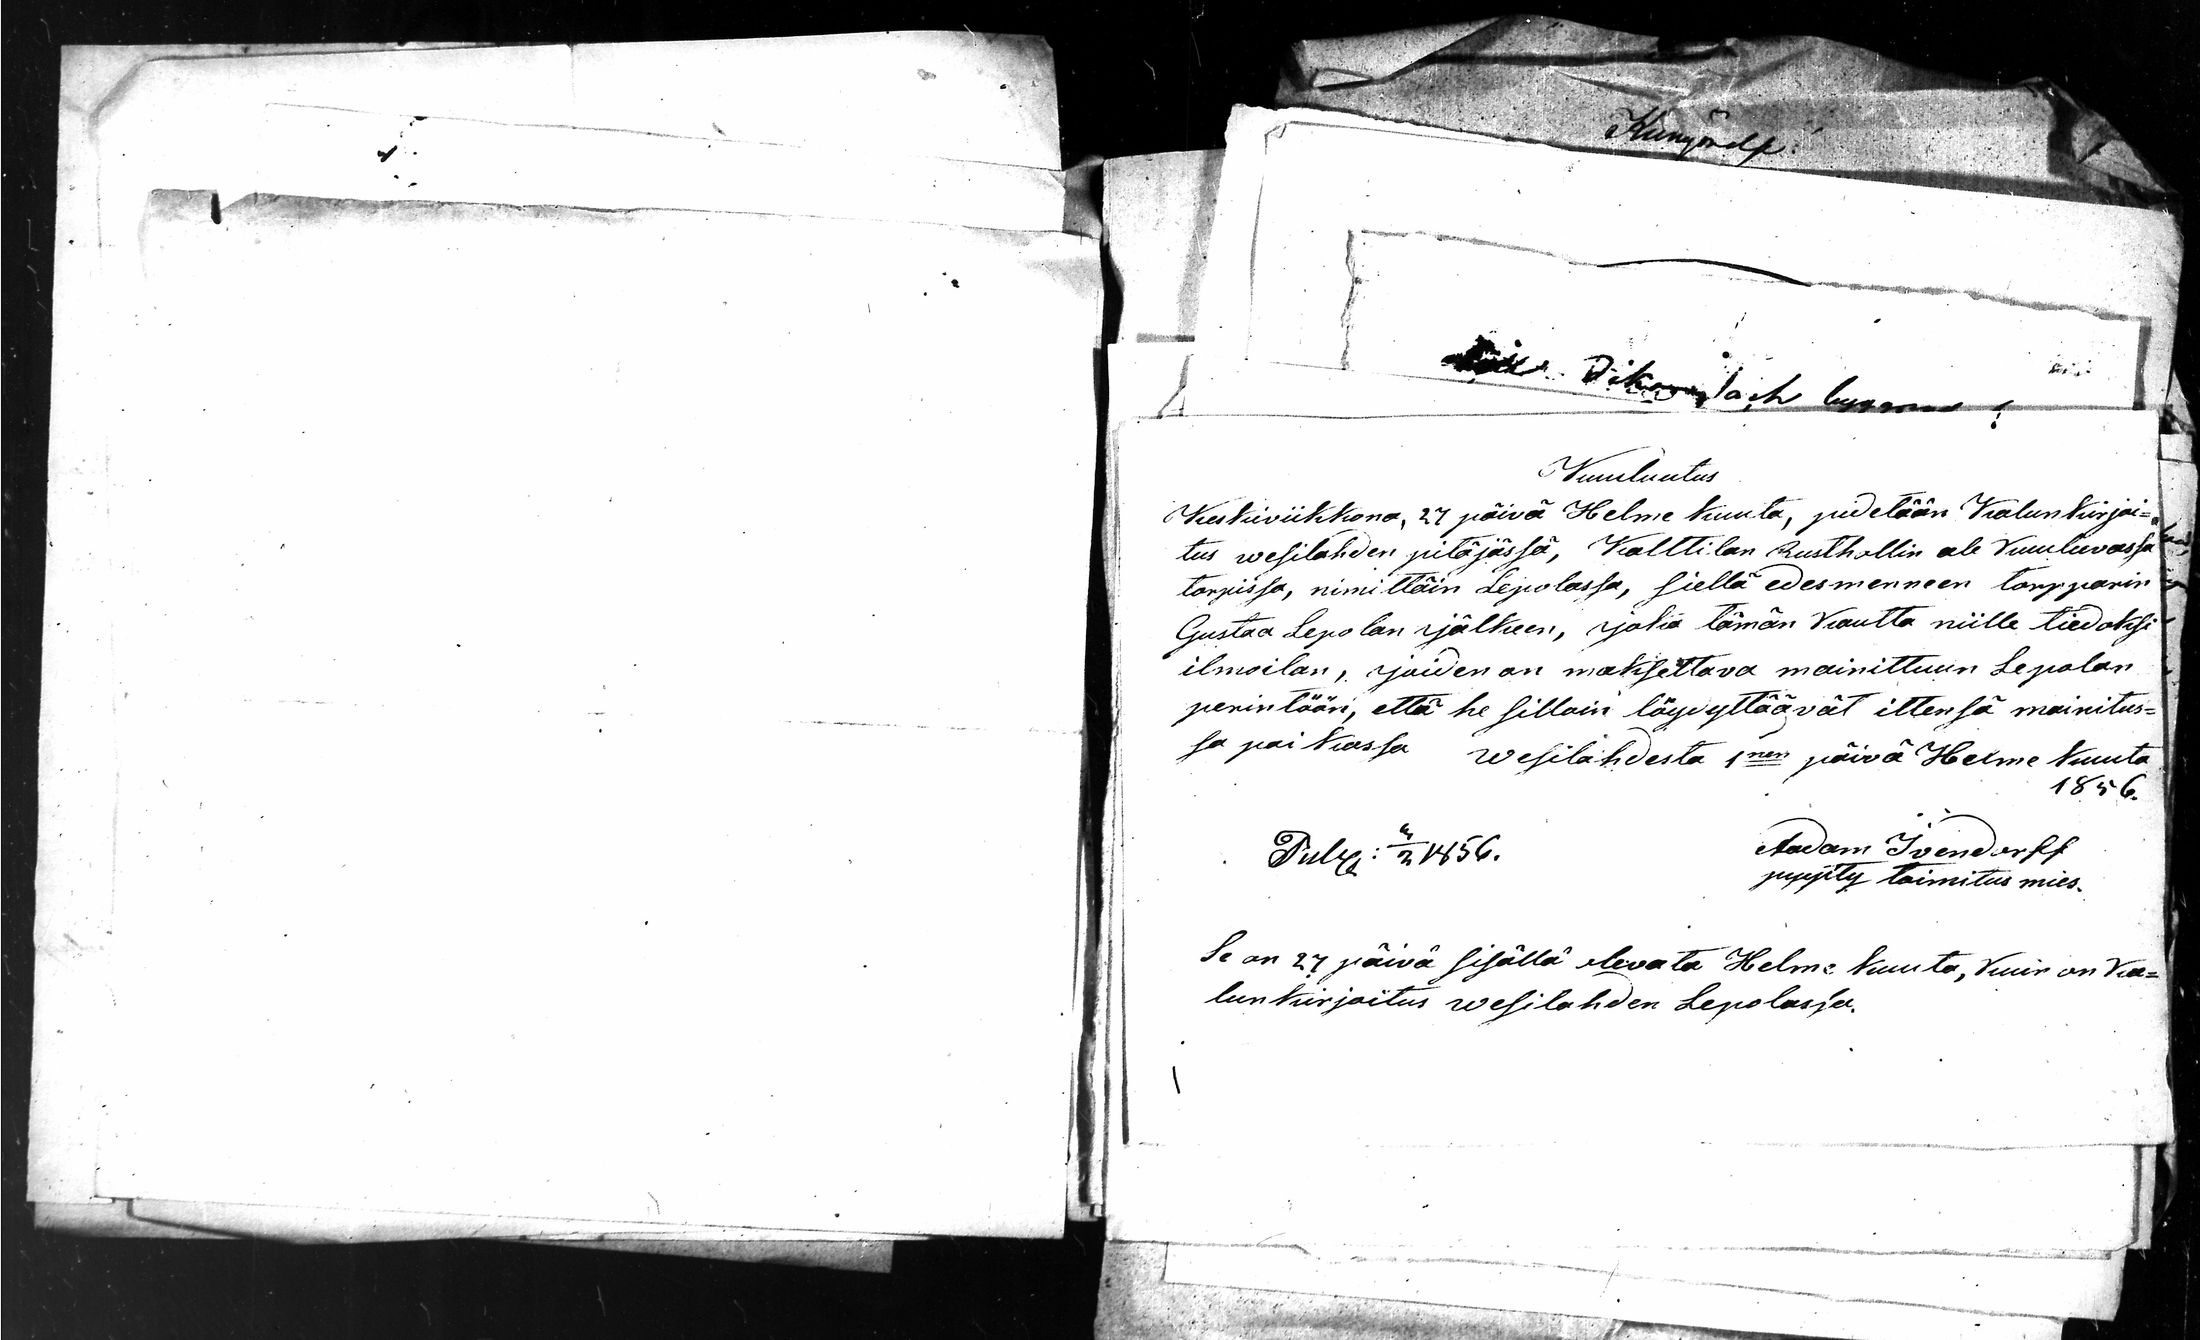 Kungörelse!
och
Kuuluutus
Keskiviikkona, 27 päivä Helme kuuta, pidetään Kalunkirjoi=
tus wesilahden pitäjässä, Kalttilan Rusthollin ale kuuluvassa
torpissa, nimittäin Lepolassa, siellä edesmenneen torpparin
Gustaa Lepolan jälkeen, joka tämän kautta niille tiedoksi
ilmoitan, joiden on maksettava mainittuun Lepolan
perintöön, että he silloin löydyttäävät ittensä mainitus=
sa paikassa wesilahdesta 1nen päivä Helme kuuta
1856.
Aadam Ivendorff
pyyjtty toimitus mies.
Se on 27 päivä sisällä olevata Helme kuuta, kuin on Ka=
lunkirjoitus wesilahden Lepolassa.